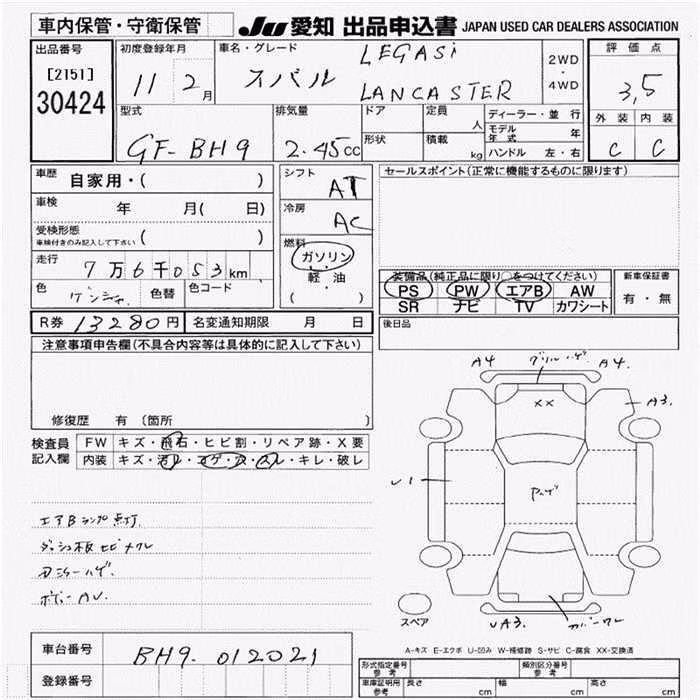 車内保管・守衛保管
JU 愛知 出品申込書 JAPAN USED CAR DEALERS ASSOCIATION
出品番号
[2151]
30424
初度登録年月
11 2月
車名・グレード
スバル
LEGASi
LANCASTER
2WD
・
4WD
評価点
3,5
外装 内装
C C
型式
GF-BH9
排気量
2.45cc
ドア
形状
定員
人
積載
kg
ディーラー・並行
モデル年式 年
ハンドル 左・右
車歴
自家用・( )
車検
年 月( 日)
受検形態
車検付きのみ記入して下さい ( )
走行
7万6千053km
色
色替
色コード
シフト
AT
冷房
AC
燃料
ガソリン
軽・油
( )
セールスポイント(正常に機能するものに限ります)
装備品(純正品に限り○をつけてください)
PS PW エアB AW
SR ナビ TV カワシート
新車保証書
有・無
R券 13280円 名変通知期限 月 日
後日品
注意事項申告欄(不具合内容等は具体的に記入して下さい)
修復歴 有 (箇所 )
検査員
記入欄
FW キズ・飛石・ヒビ割・リペア跡・X要
内装 キズ・汚レ・コゲ・穴・スレ・キレ・破レ
エアBランプ点灯.
ダッシュ板ヒビナクレ
ボデーAU.
A4
グリルハゲ
A4.
A3.
XX
U1
UA3.
スペア
A-キズ E-エクボ U-凹み W-補修跡 S-サビ C-腐食 XX-交換済
車台番号
BH9-012021
登録番号
形式指定番号
参考
類別区分番号
参考
車庫証明用
参考
長さ cm 幅 cm 高さ cm